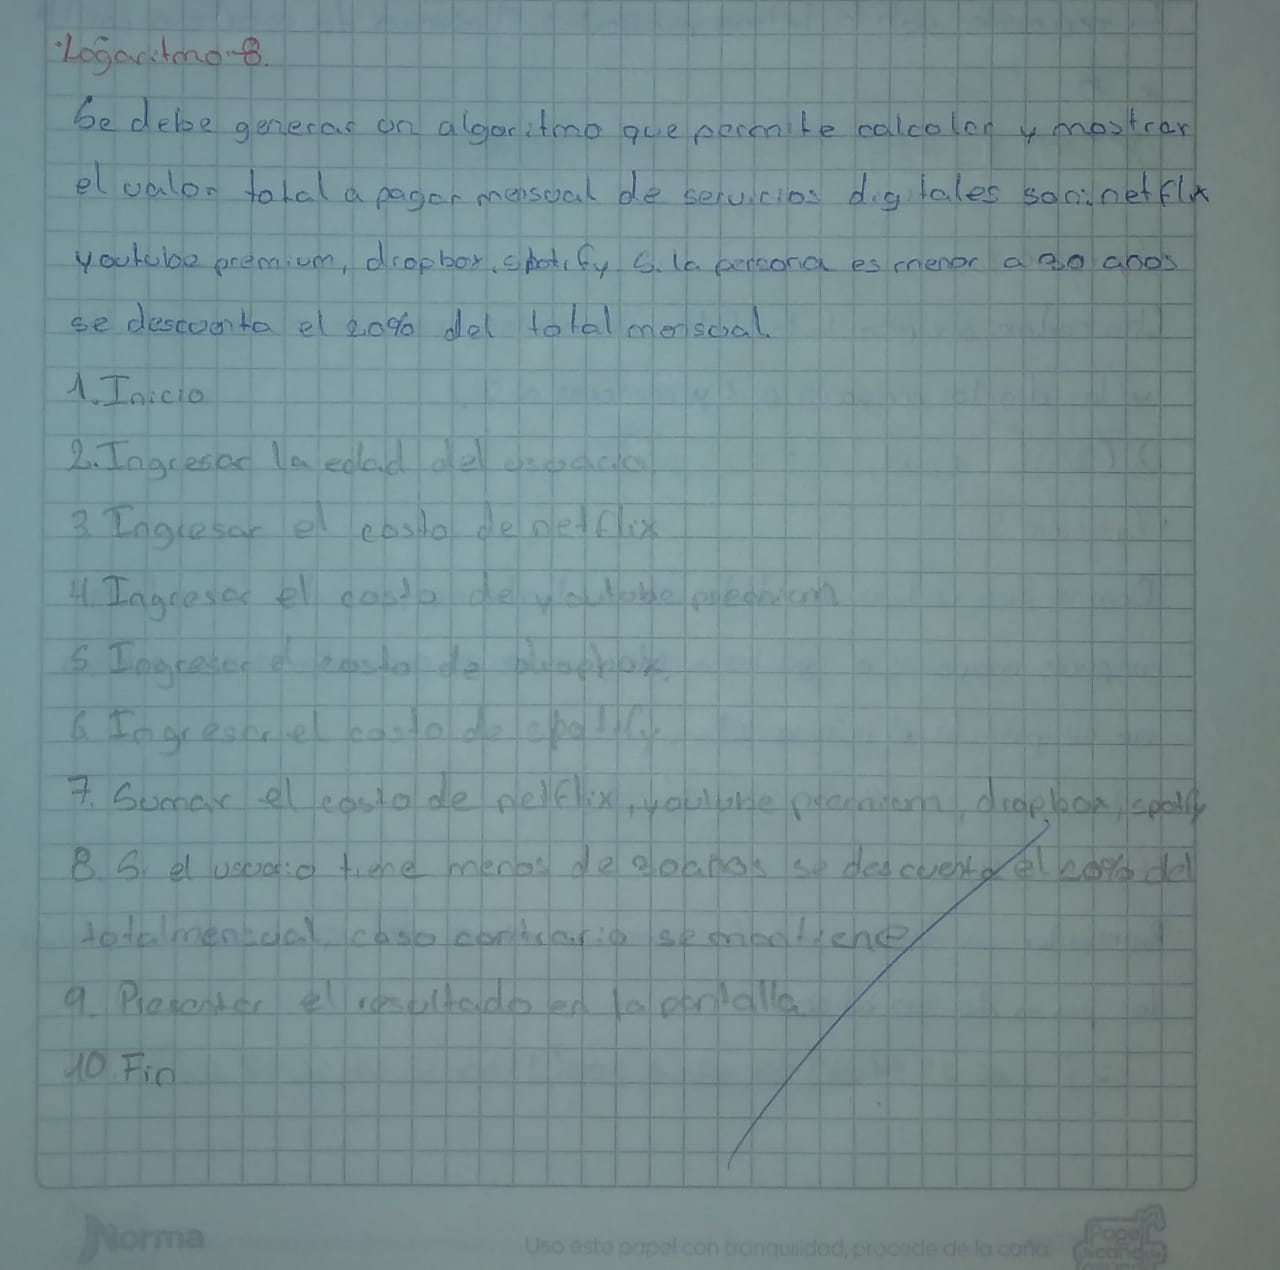 ·Logaritmo-8.
Se debe generar un algoritmo que permite calcular y mostrar
el valor total a pagar mensual de servicios digitales son: netflix
youtube premium, dropbox, spotify Si la persona es menor a 20 anos
se descuenta el 20% del total mensual.
1. Inicio
2. Ingresar la edad del usuario
3. Ingresar el costo de netflix
4. Ingresar el costo de youtube premium
5. Ingresar el costo de dropbox.
6. Ingresar el costo de spotify
7. Sumar el costo de netflix, youtube premium, dropbox, spotify
8. Si el usuario tiene menos de 20 anos se descuenta el 20% del
total mensual, caso contrario se mantiene
9. Presentar el resultado en la pantalla
10. Fin
Norma
Uso este papel con tranquilidad, procede de la caña.
Papel